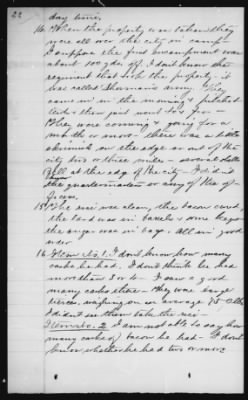 22
day time.
16. When the property was taken they
were all over the city in camp.
I suppose the first encampment was
about 100 yds off. I don't know the
regiment that took the property - it
was called Sherman's army. They
came in in the morning &
They were coming & going for a
month or more - there was a little
skirmish on the edge or out of the
city two or three miles - several
fell at the edge of the city. I did
the quartermaster or any of the of-
ficers.
18. The rice was clean, the bacon cured,
the lard was in barrels & some kegs
the sugar was in bags. all in good
order
16. Item No. 1. I don't know how many
casks he had. I don't think he had
more than 3 or 4. I saw a great
many casks there - they were large
tierces, weighing on an average
I didn't see them take the rice -
Item No. 2. I am not able to say how
many casks of bacon he had - I don't
know whether he had two or more